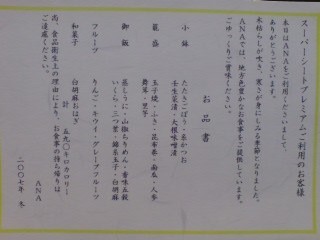 スーパーシートプレミアムご利用のお客様
本日はANAをご利用くださいまして、
ありがとうございます。
木枯らしが吹き、寒さが身にしみる季節となりました。
ANAでは、地方色豊かなお食事をご提供しています。
ごゆっくりご賞味ください。
お品書
小鉢 たたきごぼう・糸かつお
壬生菜漬・大根味噌漬
籠盛 玉子焼・ふき・昆布巻・南瓜・人参
舞茸・里芋
御飯 蒸しうに・山椒ちりめん・香味五穀
いくら・三つ葉・錦糸玉子・白胡麻
フルーツ りんご・キウイ・グレープフルーツ
和菓子 白胡麻おはぎ
計 五九〇キロカロリー
尚、食品衛生上の理由により、お食事の持ち帰りは
ご遠慮ください。
ANA
二〇〇七年 冬